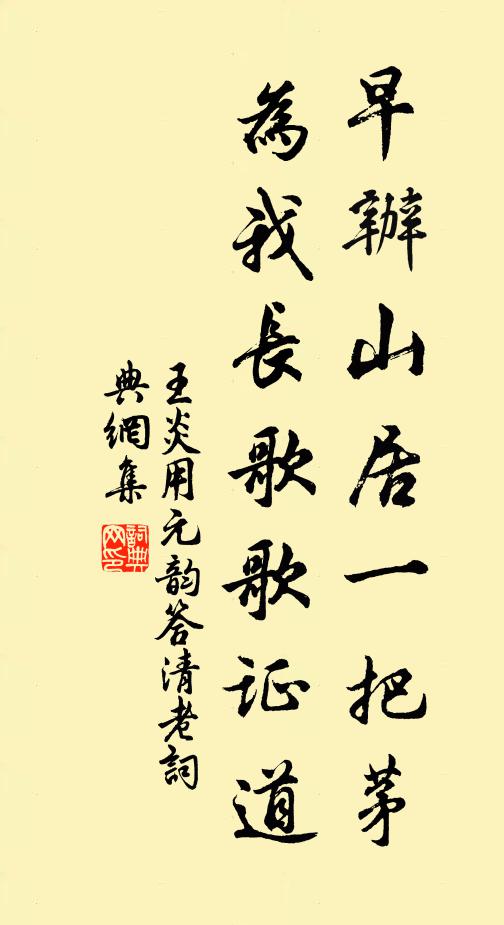 早辦山居一把茅
為我長歌歌证道
王炎用元韵答清老詞
典網集
詞典网印